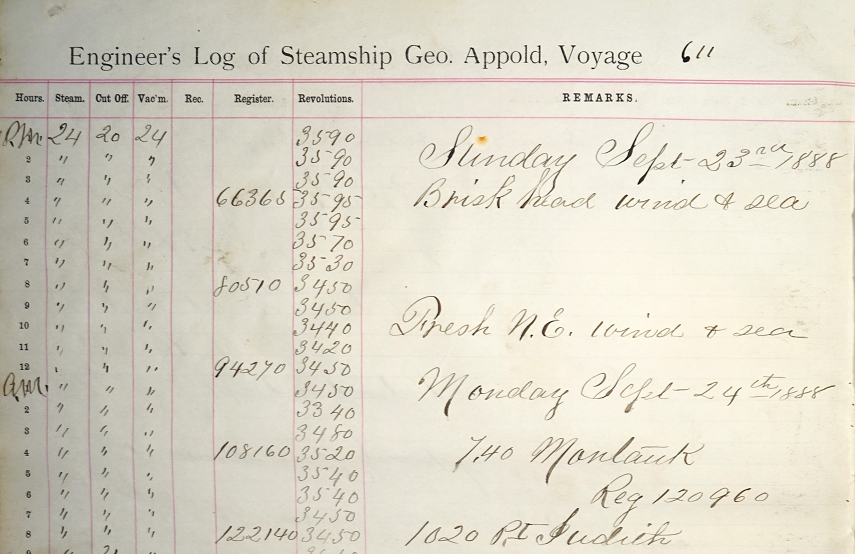 Engineer's Log of Steamship Geo. Appold, Voyage 611
Hours. Steam. Cut Off. Vac'm. Rec. Register. Revolutions. REMARKS.
P.M. 24 20 24 3590
2 " " " 3590 Sunday Sept 23rd 1888
3 " " " 3590
4 " " " 66365 3595 Brisk head wind & sea
5 " " " 3595
6 " " " 3570
7 " " " 3530
8 " " " 80510 3450
9 " " " 3450
10 " " " 3440 Fresh N.E. wind & sea
11 " " " 3420
12 " " " 94270 3450
A.M. " " " 3450 Monday Sept 24th 1888
2 " " " 3340
3 " " " 3480
4 " " " 108160 3520 7.40 Montauk
5 " " " 3540
6 " " " 3540 Reg 120960
7 " " " 3450
8 " " " 122140 3450 1020 Pt Judith
9 " 21 "